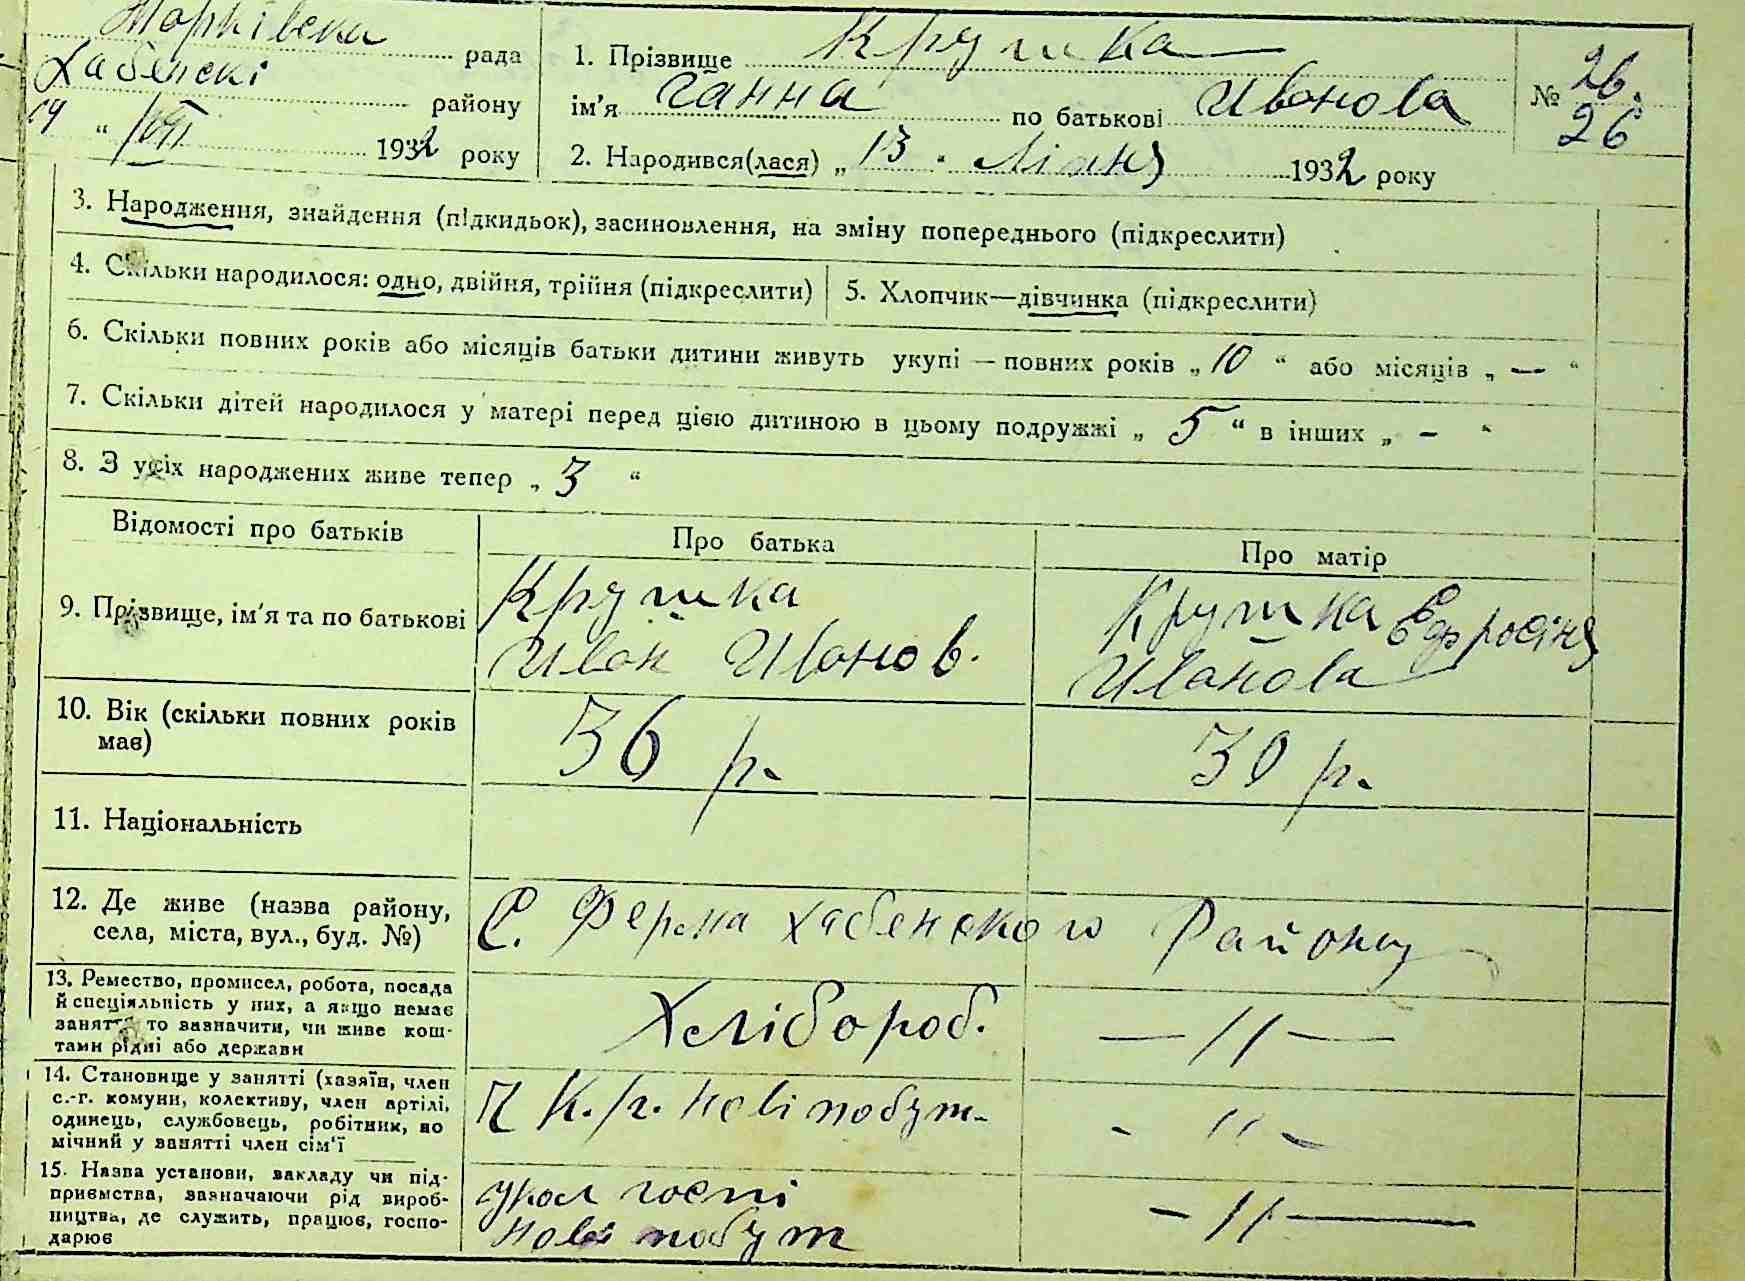 рада
Хабенскі району
19 " VIII 1932 року
1. Прізвище Крушка
ім'я Ганна по батькові Иванова
№ 26.
26
2. Народився(лася) „ 13 " Липня 1932 року
3. Народження, знайдення (підкидьок), засиновлення, на зміну попереднього (підкреслити)
4. Скільки народилося: одно, двійня, трійня (підкреслити)
5. Хлопчик—дівчинка (підкреслити)
6. Скільки повних років або місяців батьки дитини живуть укупі — повних років „ 10 “ або місяців „ — “
7. Скільки дітей народилося у матері перед цією дитиною в цьому подружжі „ 5 “ в інших „ - “
8. З усіх народжених живе тепер „ 3 “
Відомості про батьків
Про батька
Про матір
9. Прізвище, ім'я та по батькові
Крушка
Иван Иванов.
Крушка Єфросіня
Иванова
10. Вік (скільки повних років
має)
36 р.
30 р.
11. Національність
12. Де живе (назва району,
села, міста, вул., буд. №)
С. Ферма Хабенского Району
13. Ремество, промисел, робота, посада
й спеціяльність у них, а якщо немає
заняття то зазначити, чи живе кош-
тами рідні або держави
Хлібороб.
— // —
14. Становище у занятті (хазяїн, член
с.-г. комуни, колективу, член артілі,
одинець, службовець, робітник, по
мічний у занятті член сім'ї
К. г. Нові побут.
- // -
15. Назва установи, закладу чи під-
приємства, зазначаючи рід вироб-
ництва, де служить, працює, госпо-
дарює
Укол госпі
Нові побут
— // —